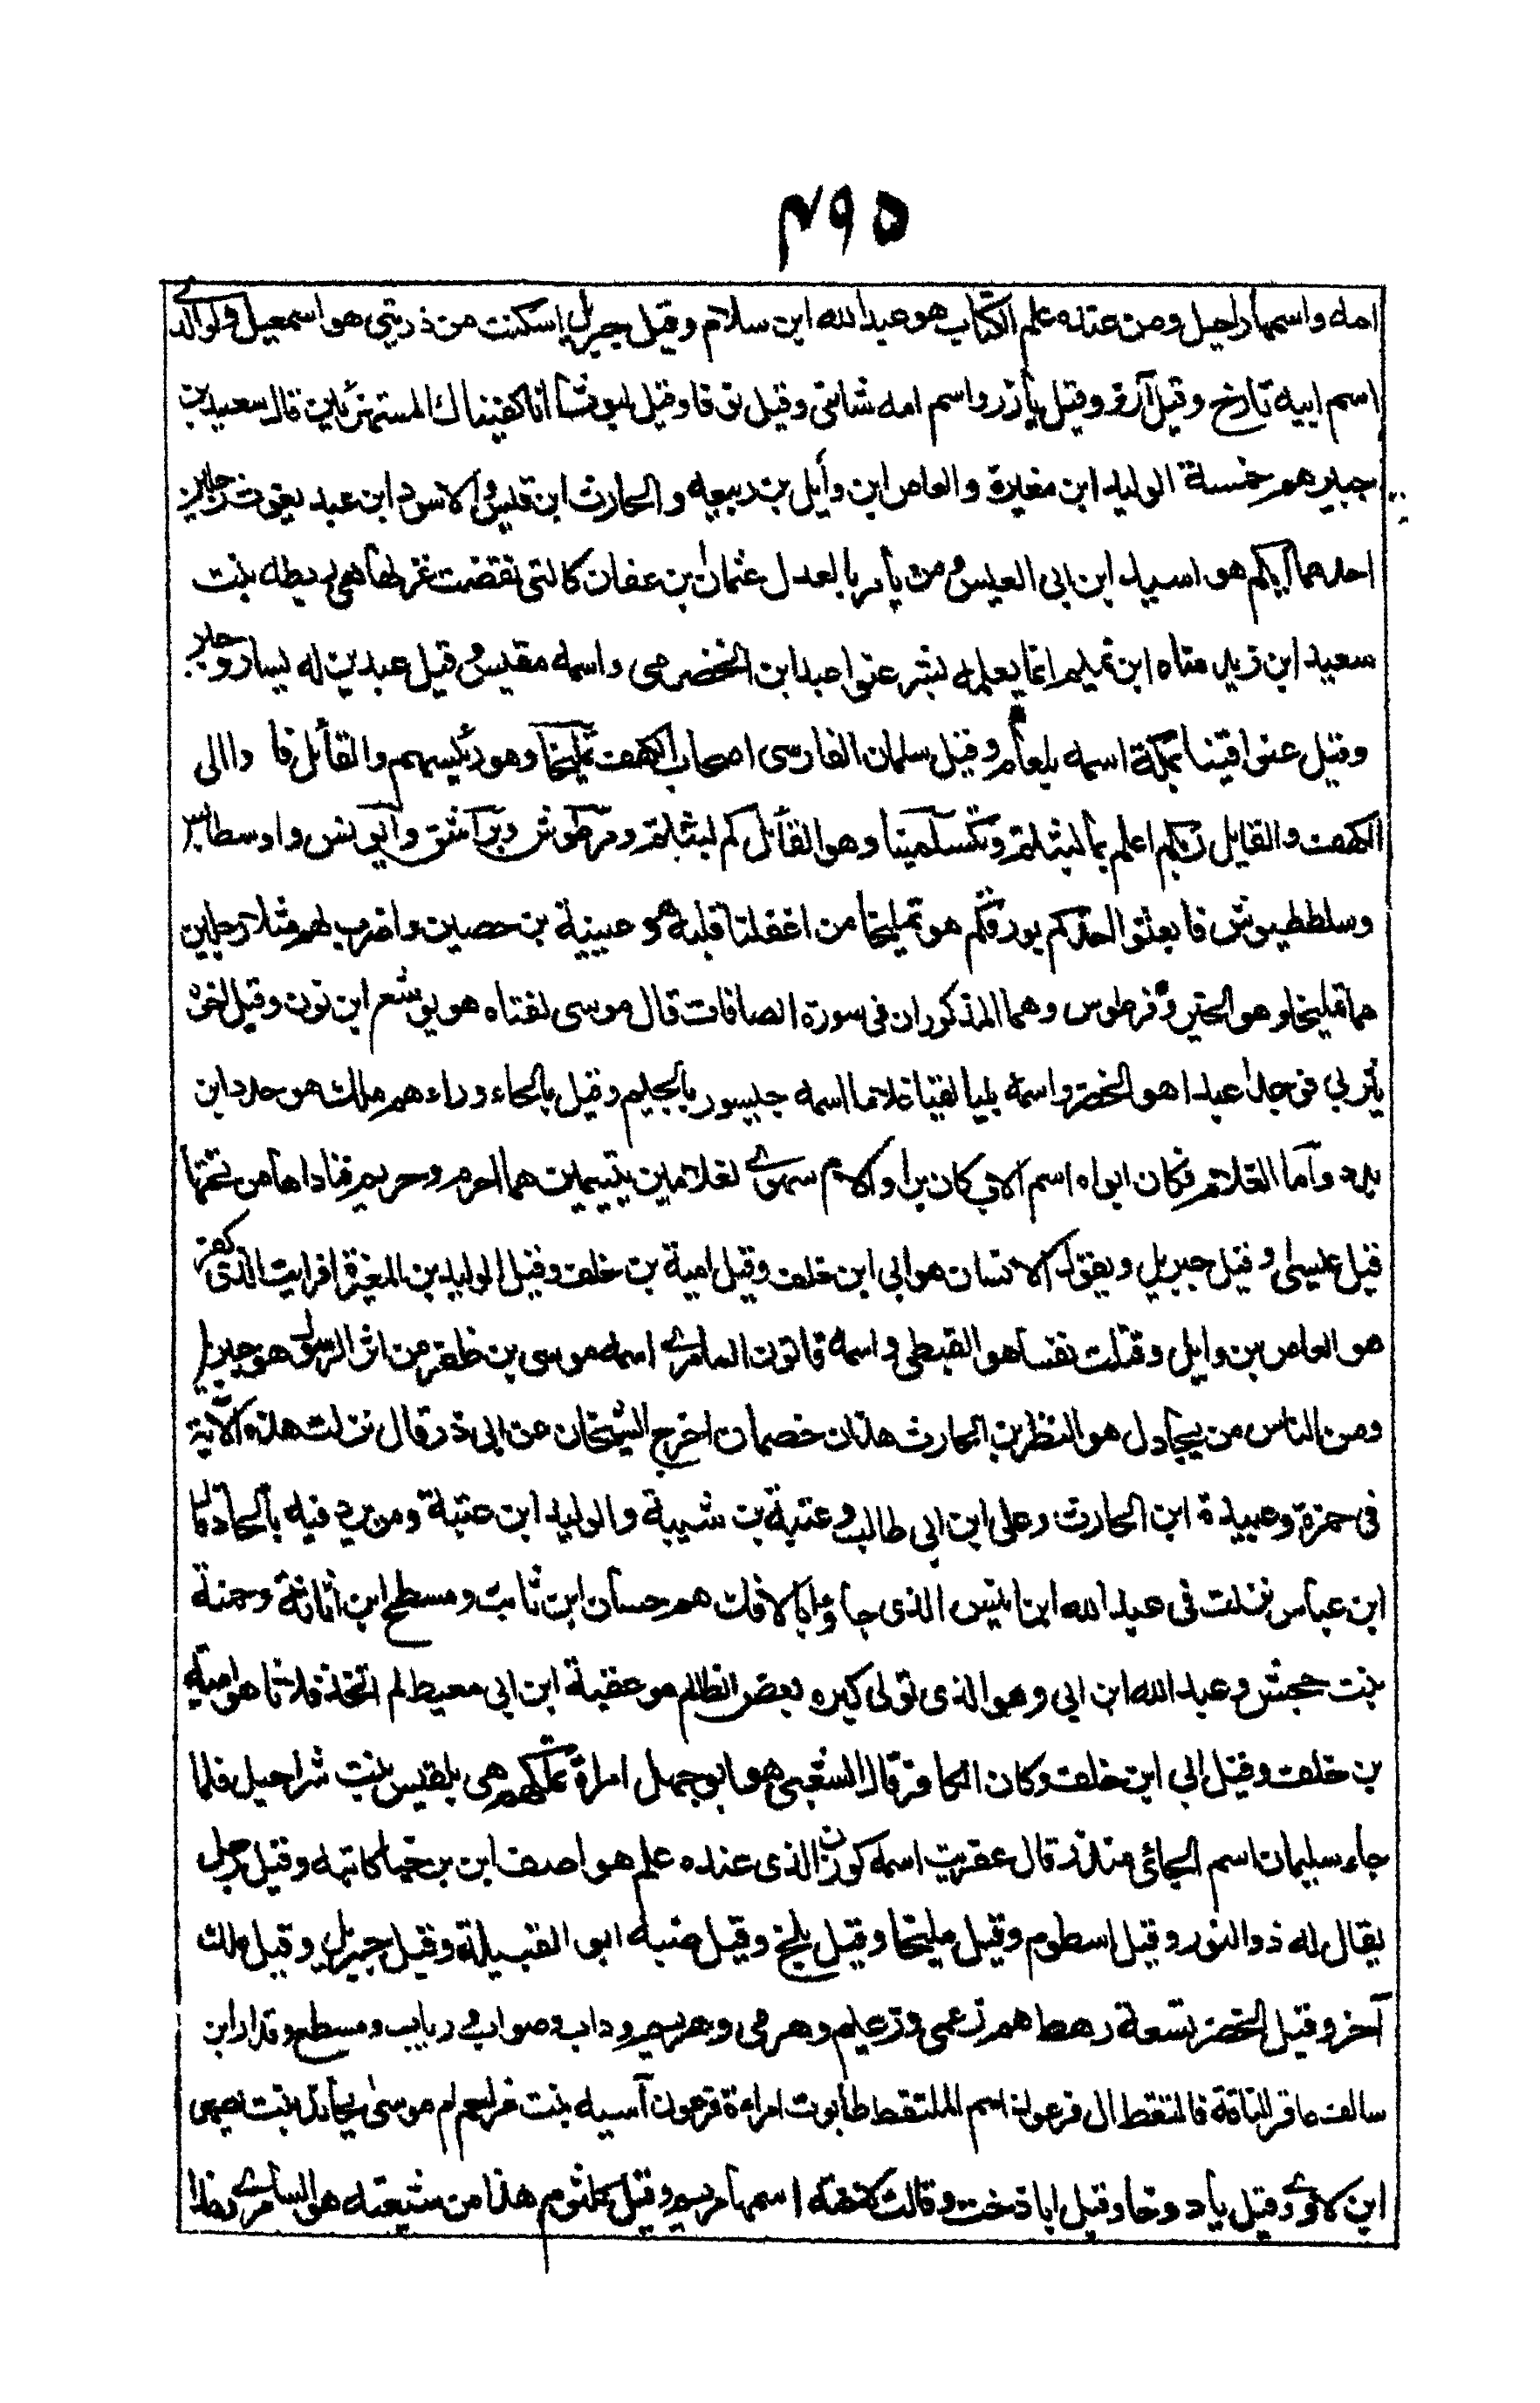 ٤٩٥
امه واسمها راحيل ومن عنده علم الكتاب هو عبد الله ابن سلام وقيل جبريل اسكنت من ذريتي هو اسمعيل ولوالدي
اسم ابيه تارخ وقيل آزر وقيل يازر واسم امه شانى وقيل نوفا وقيل ليوثا انا كفيناك المستهزئين قال سعيد بن
جبير هم خمسة الوليد ابن مغيرة والعاص ابن وأيل بن ربيعه والحارث ابن قيس والاسود ابن عبد يغوث رجلين
احدهما ابكم هو اسيد ابن ابى العيس ومن يأمر بالعدل عثمان بن عفان كالتى نقضت غزلها هى ريطه بنت
سعيد ابن زيد مناه ابن تميم انما يعلمه بشر عنوا عبد ابن الخضرمى واسمه مقيس وقيل عبدين له يسار وجبر
وقيل عنوا قينا بمكة اسمه بلعام وقيل سلمان الفارسى اصحاب الكهف تمليخا وهو رئيسهم والقائل فا وا الى
الكهف والقايل ربكم اعلم بما لبثتم وتكسلمينا وهو القائل كم لبثتم ومرطوش وبراشق وأيونس واوسطانس
وسلططيوش فابعثوا احدكم بورقكم هو تمليخا من اغفلنا قلبه هو عيينة بن حصين واضرب لهم مثلا رجلين
هما تمليخا وهو الخير وفرطوس وهما المذكوران فى سورة الصافات قال موسى لفتاه هو يوشع ابن نون وقيل اخوه
يثربى فوجدا عبدا هو الخضر واسمه بليا لقيا غلاما اسمه جيسور بالجيم وقيل بالحاء وراء هم ملك هو حدد ابن
بدد وأما الغلام فكان ابواه اسم الاب كان برا والام سهوى لغلامين يتيمين هما اصرم وحريم فناداها من تحتها
قيل عيسى وقيل جبريل ويقول الانسان هو ابى ابن خلف وقيل امية بن خلف وقيل الوليد بن المغيرة افرايت الذى كفر
هو العاص بن وايل وقتلت نفسا هو القبطى واسمه قانون السامرى اسمه موسى بن ظفر من اثر الرسول هو جبريل
ومن الناس من يجادل هو النظر بن الحارث هذان خصمان اخرج الشيخان عن ابى ذر قال نزلت هذه الآية
فى حمزة وعبيدة ابن الحارث وعلى ابن ابى طالب وعتبة بن شيبة والوليد ابن عتبة ومن يرد فيه بالحاد قال
ابن عباس نزلت فى عبد الله ابن انيس الذى جاؤا بالافك هم حسان ابن ثابت ومسطح ابن اثاثة وحمنة
بنت حجش وعبد الله ابن ابى وهو الذى تولى كبره بعض الظالم هو عقبة ابن ابى معيط لم اتخذ فلانا هو امية
بن خلف وقيل ابى ابن خلف وكان الكافر قال الشعبى هو ابو جهل امراة تملكهم هى بلقيس بنت شراحيل فلما
جاء سليمان اسم الجائى منذر قال عفريت اسمه كوزن الذى عنده علم هو اصف ابن برخيا كاتبه وقيل رجل
يقال له ذو النور وقيل اسطوم وقيل مليخا وقيل بلخ وقيل ضبه ابو القبيلة وقيل جبريل وقيل ملك
آخر وقيل الخضر تسعة رهط هم زعمى وزعيم وهرمى وهريم وداب وصواب و رباب ومسطح وقدار ابن
سالف عاقر الناقة فالتقط ال فرعون اسم الملتقط طابوت امراءة فرعون آسيه بنت مزاحم ام موسى يحانذ بنت يصهر
ابن لاوى وقيل يادوخا وقيل اباذخت وقالت لاخته اسمها مريم وقيل كلثوم هذا من شيعته هو السامرى وهذا